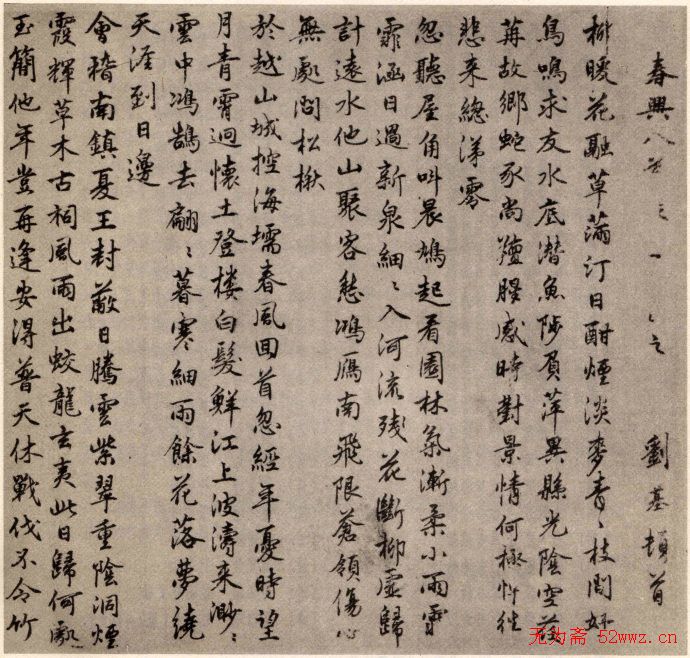 春興八首之一 之 劉基頓首
柳暖花融草滿汀日酣煙淡麥青〻枝間好
鳥鳴求友水底潛魚陟負萍異縣光陰空荏
苒故鄉蛇豕尚羶腥感時對景情何極忻往
悲来總涕零
忽聽屋角叫晨鳩起看園林氣漸柔小雨霏
霏涵日過新泉細〻入河流殘花斷柳虛歸
計遠水他山聚客愁鴻雁南飛限蒼領傷心
無處問松楸
於越山城控海壖春風回首忽經年憂時望
月青霄迥懷土登樓白髮鮮江上波濤来渺〻
雲中鴻鵠去翩〻暮寒細雨餘花落夢繞
天涯到日邊
會稽南鎮夏王封蔽日騰雲紫翠重陰洞煙
霞輝草木古祠風雨出蛟龍玄夷此日歸何處
玉簡他年豈再逢安得普天休戰伐不令竹
无为斋 52wwz.cn